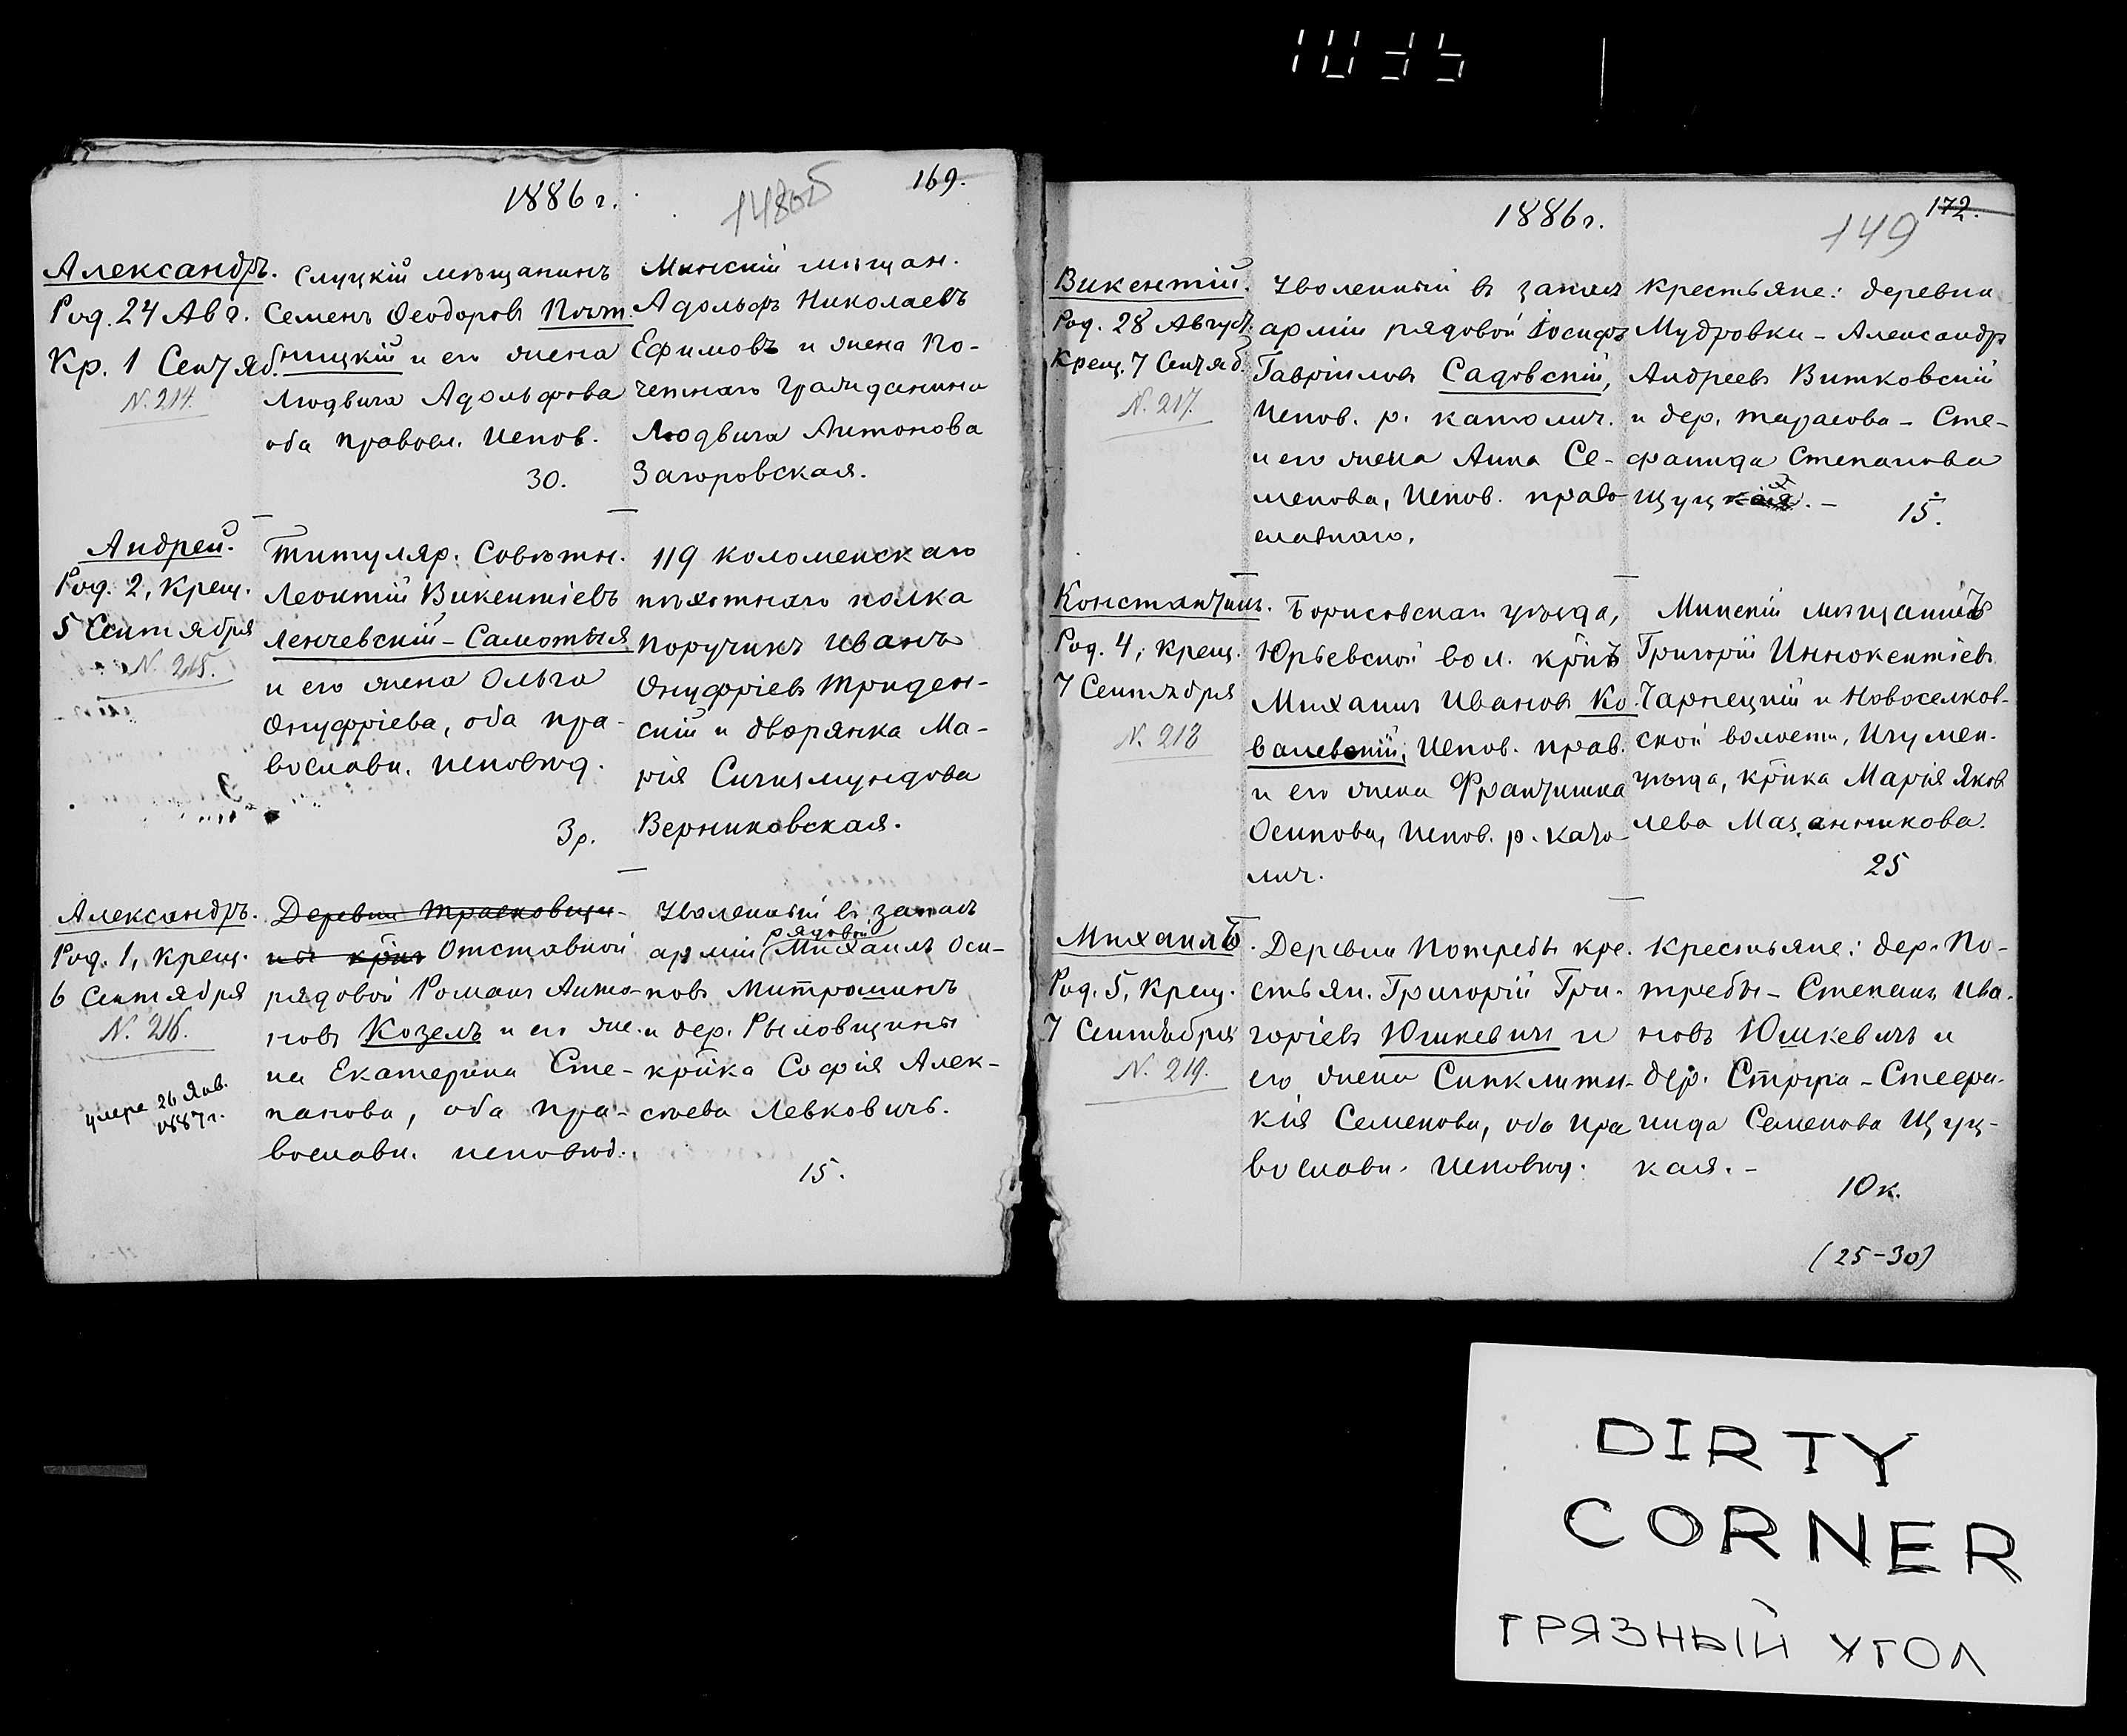 1886 г.
148об
169.
Александръ.
Род. 24 Авг.
Кр. 1 Сентяб.
N. 214.
Слуцкій мѣщанинъ
Семенъ Ѳеодоровъ Почт
ницкій и его жена
Людвига Адольфова
оба правосл. испов.
30.
Минскій мѣщан.
Адольфъ Николаевъ
Ефимовъ и жена По-
четнаго гражданина
Людвига Антонова
Загоровская.
Андрей.
Род. 2, Крещ.
5 Сентября
N. 215.
Титуляр. Совѣтн.
Леонтій Викентіевъ
Ленчевскій-Самотыя
и его жена Ольга
Онуфріева, оба пра-
вославн. исповѣд.
3р.
119 Коломенскаго
пѣхотнаго полка
поручикъ Иванъ
Онуфріевъ Триден-
скій и дворянка Ма-
рія Сигизмундова
Верниковская.
Александръ.
Род. 1, Крещ.
6 Сентября
N. 216.
умре 26 Янв.
1887 г.
Деревни Трасковщи-
ны крӣнъ Отставной
рядовой Романъ Анто-
новъ Козелъ и его же-
на Екатерина Сте-
панова, оба пра-
вославн. исповѣд.
Уволенный въ запасъ
арміи рядовой Михаилъ Оси-
повъ Митрошинъ
и дер. Рыловщины
крӣнка Софія Алек-
сѣева Левковичъ.
15.
1886 г.
149
172.
Викентій.
Род. 28 Август.
Крещ. 7 Сентяб.
N. 217.
Уволенный въ запасъ
арміи рядовой Іосифъ
Гавріиловъ Садовскій,
испов. р. католич.
и его жена Анна Се-
менова, испов. право-
славнаго.
Крестьяне: деревни
Мудровки - Александръ
Андреевъ Витковскій
и дер. Тарасова - Сте-
фанида Степанова
Щуцкая. -
15.
Константинъ.
Род. 4, Крещ.
7 Сентября
N. 218
Борисовскаго уѣзда,
Юрьевской вол. крӣнъ
Михаилъ Ивановъ Ко
валевскій, испов. прав.
и его жена Францишка
Осипова, испов. р. като-
лич.
Минскій мѣщанинъ
Григорій Иннокентіевъ
Чарнецкій и Новоселков-
ской волости, Игумен.
уѣзда, крӣнка Марія Яков
лева Мазаникова.
25
Михаилъ.
Род. 5, Крещ.
7 Сентября
N. 219.
Деревни Потребы кре-
стьян. Григорій Гри-
горіевъ Юшкевичъ и
его жена Синклити-
кія Семенова, оба пра
вославн. исповѣд.
Крестьяне: дер. По-
требы - Степанъ Ива-
новъ Юшкевичъ и
дер. - Стефа-
нида Семенова Щуц-
кая. -
10 к.
(25-30)
DIRTY
CORNER
ГРЯЗНЫЙ УГОЛ